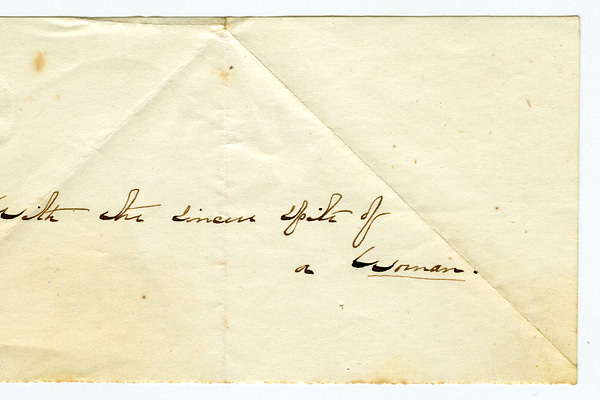 With the sincere spite of
a Woman.